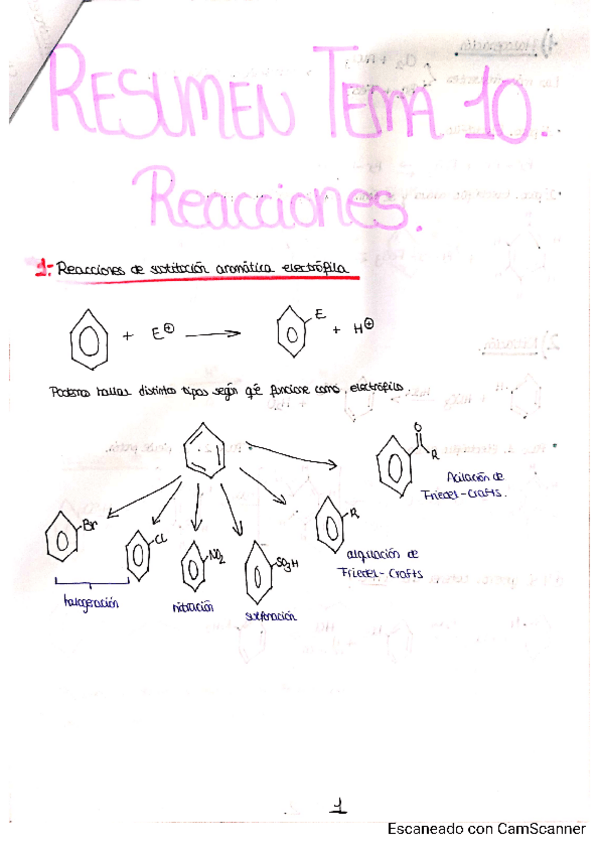 RESUMEN TEMA 10.
Reacciones.
1- Reacciones de sustitución aromática electrófila
+ E⊕ → E + H⊕
Podemos hallar distintos tipos según qé funcione como electrófilo.
O
R
Acilación de
Friedel-Crafts.
Br
Cl
NO2
SO3H
R
alquilación de
Friedel-Crafts
halogenación
nitración
sulfonación
1
Escaneado con CamScanner